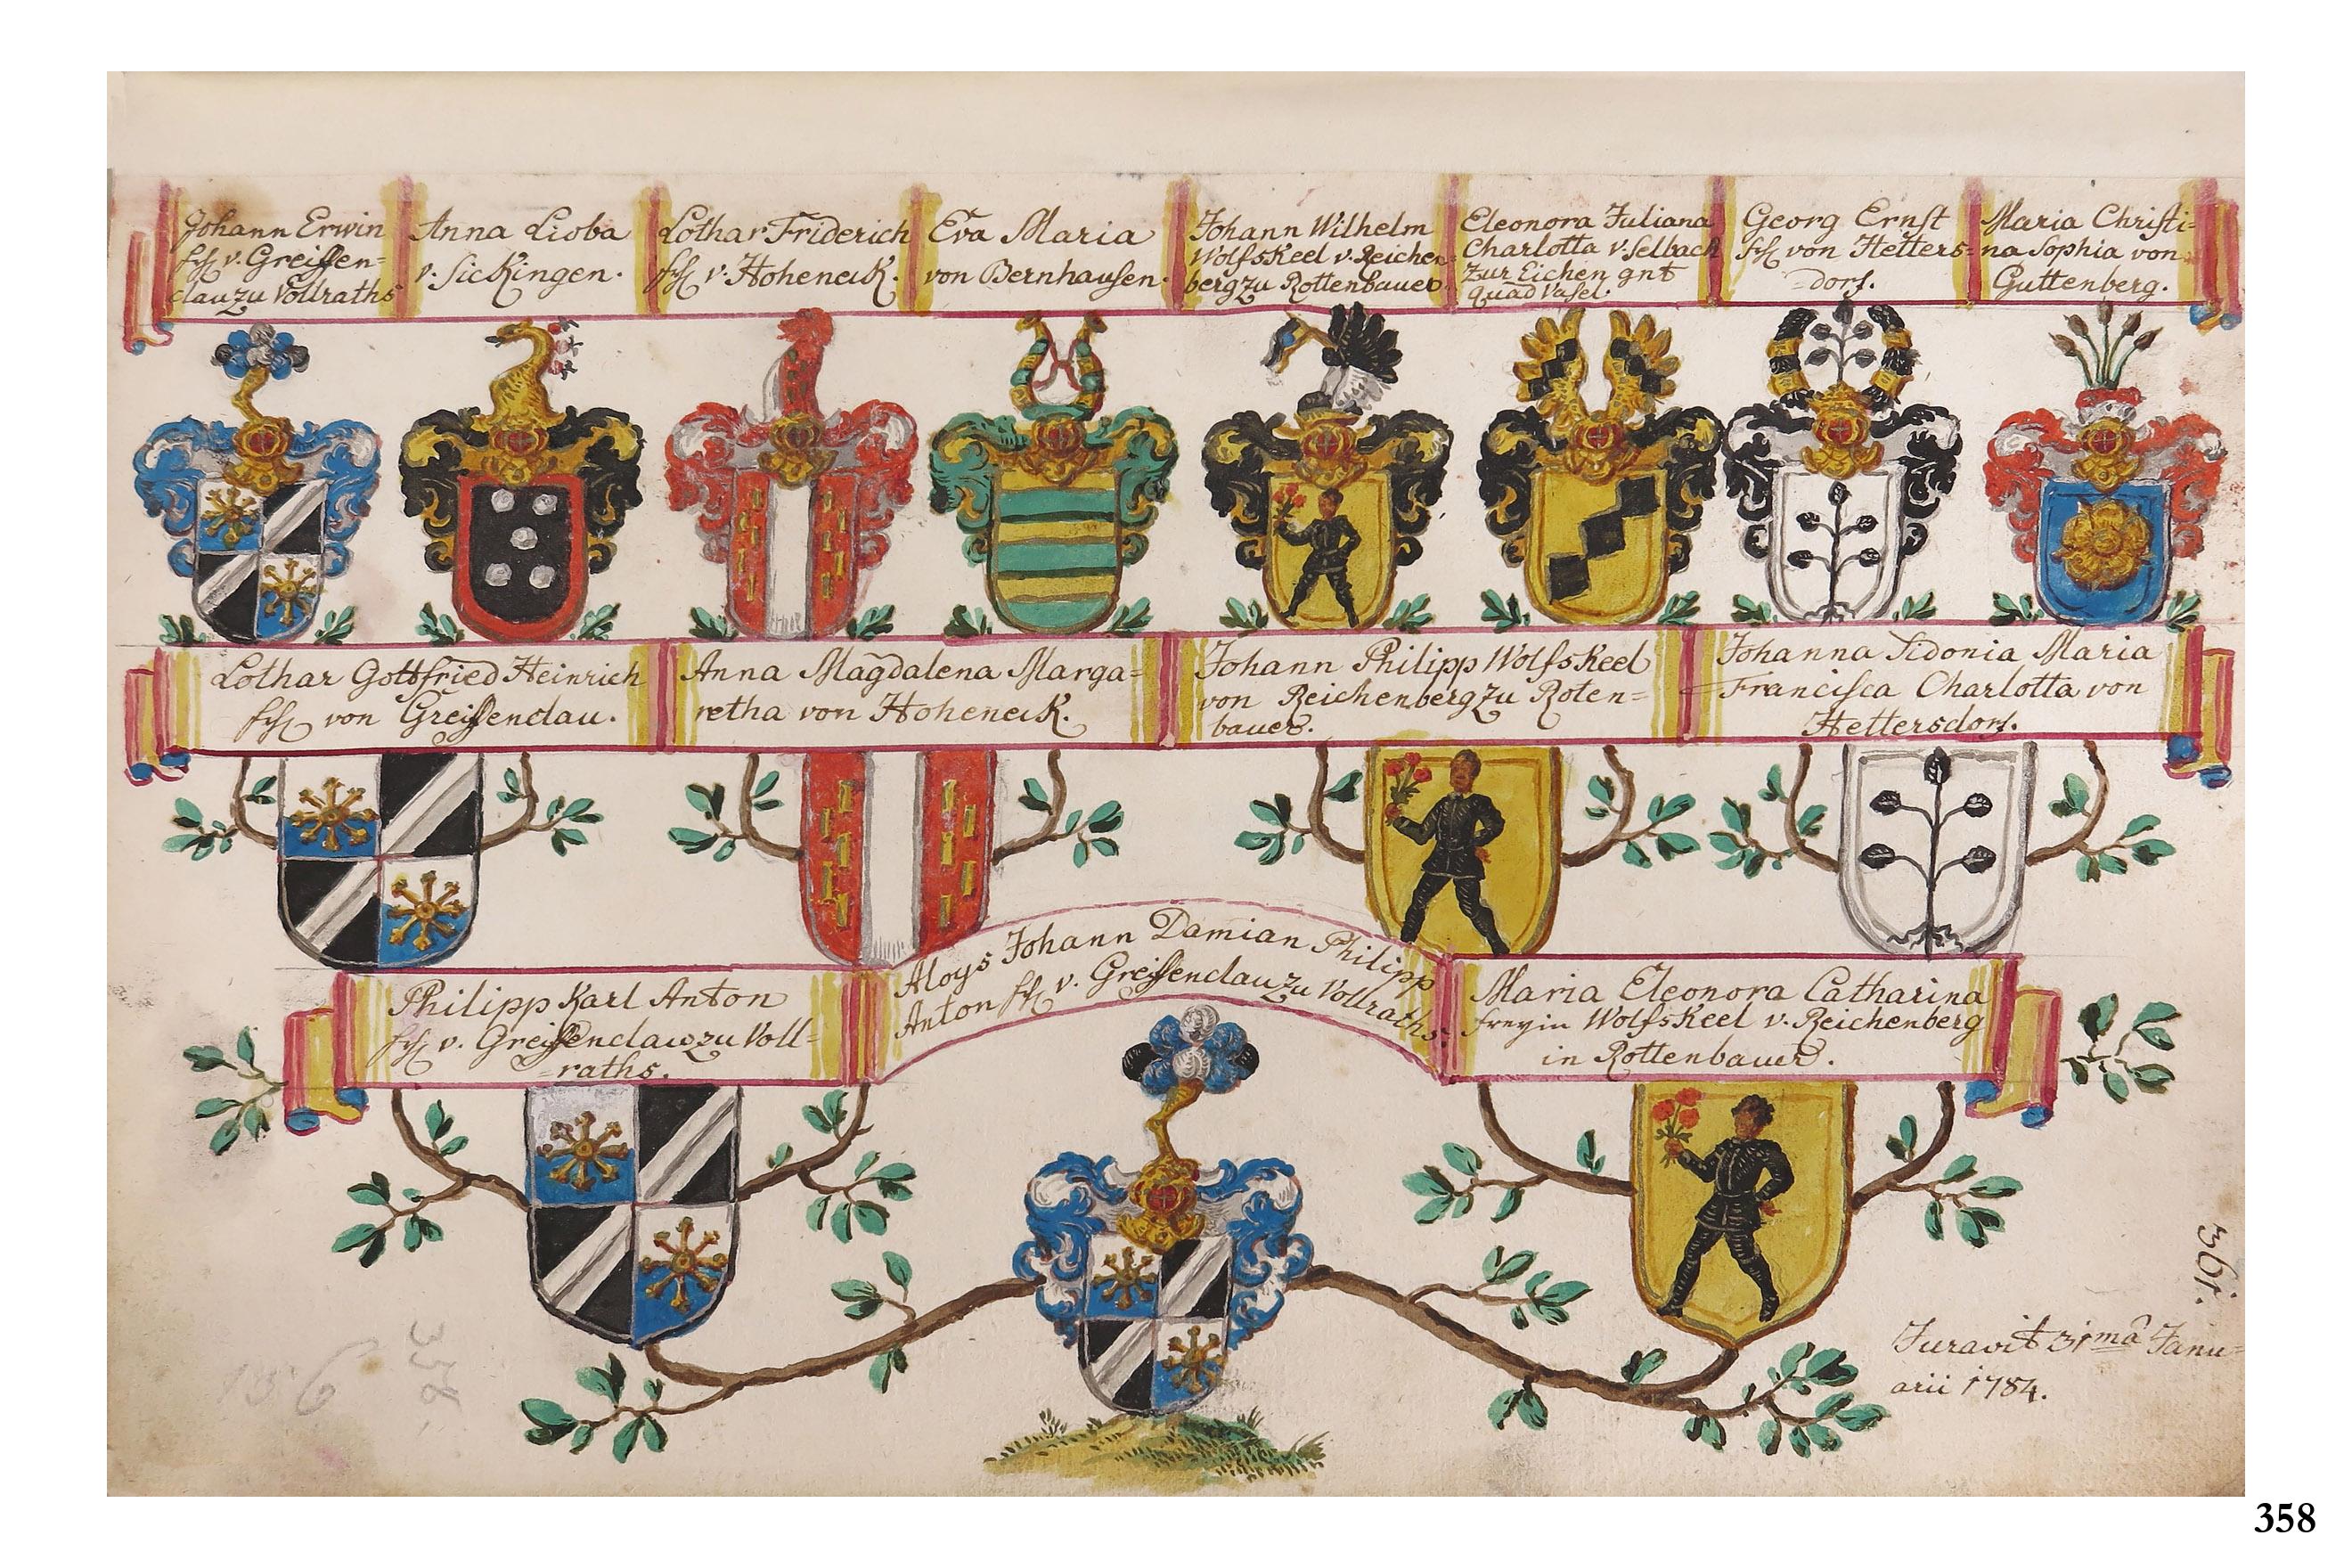 Johann Erwin
frh v. Greiffen=
clau zu Vollraths
Anna Lioba
v. Sickingen.
Lothar Friderich
frh v. Hoheneck.
Eva Maria
von Bernhausen.
Johann Wilhelm
Wolfskeel v. Reichen
berg zu Rottenbauer.
Eleonora Juliana
Charlotta v. Selbach
zur Eichen gnt
quad Vasel.
Georg Ernst
frh von Hetters=
=dorf.
Maria Christi=
na Sophia von
Guttenberg.
Lothar Gottfried Heinrich
frh von Greiffenclau.
Anna Magdalena Marga=
retha von Hoheneck.
Johann Philipp Wolfskeel
von Reichenberg zu Roten=
bauer.
Johanna Sidonia Maria
Francisca Charlotta von
Hettersdorf.
Philipp Karl Anton
frh v. Greiffenclau zu Voll=
=raths.
Aloys Johann Damian Philipp
Anton frh v. Greiffenclau zu Vollraths.
Maria Eleonora Catharina
freyin Wolfskeel v. Reichenberg
in Rottenbauer.
361.
Juravit 31mâ Janu=
arii 1784.
136
358.
358